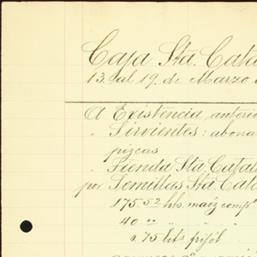 Caja Sta. Cata
13 al 19 de Marzo
A Existencia anteri
" Sirvientes: abona
pizcas
" Tienda Sta Catal
por Semillas Sta Cata
175 52 hs. maíz comps
40 " "
a 75 lits frijol "